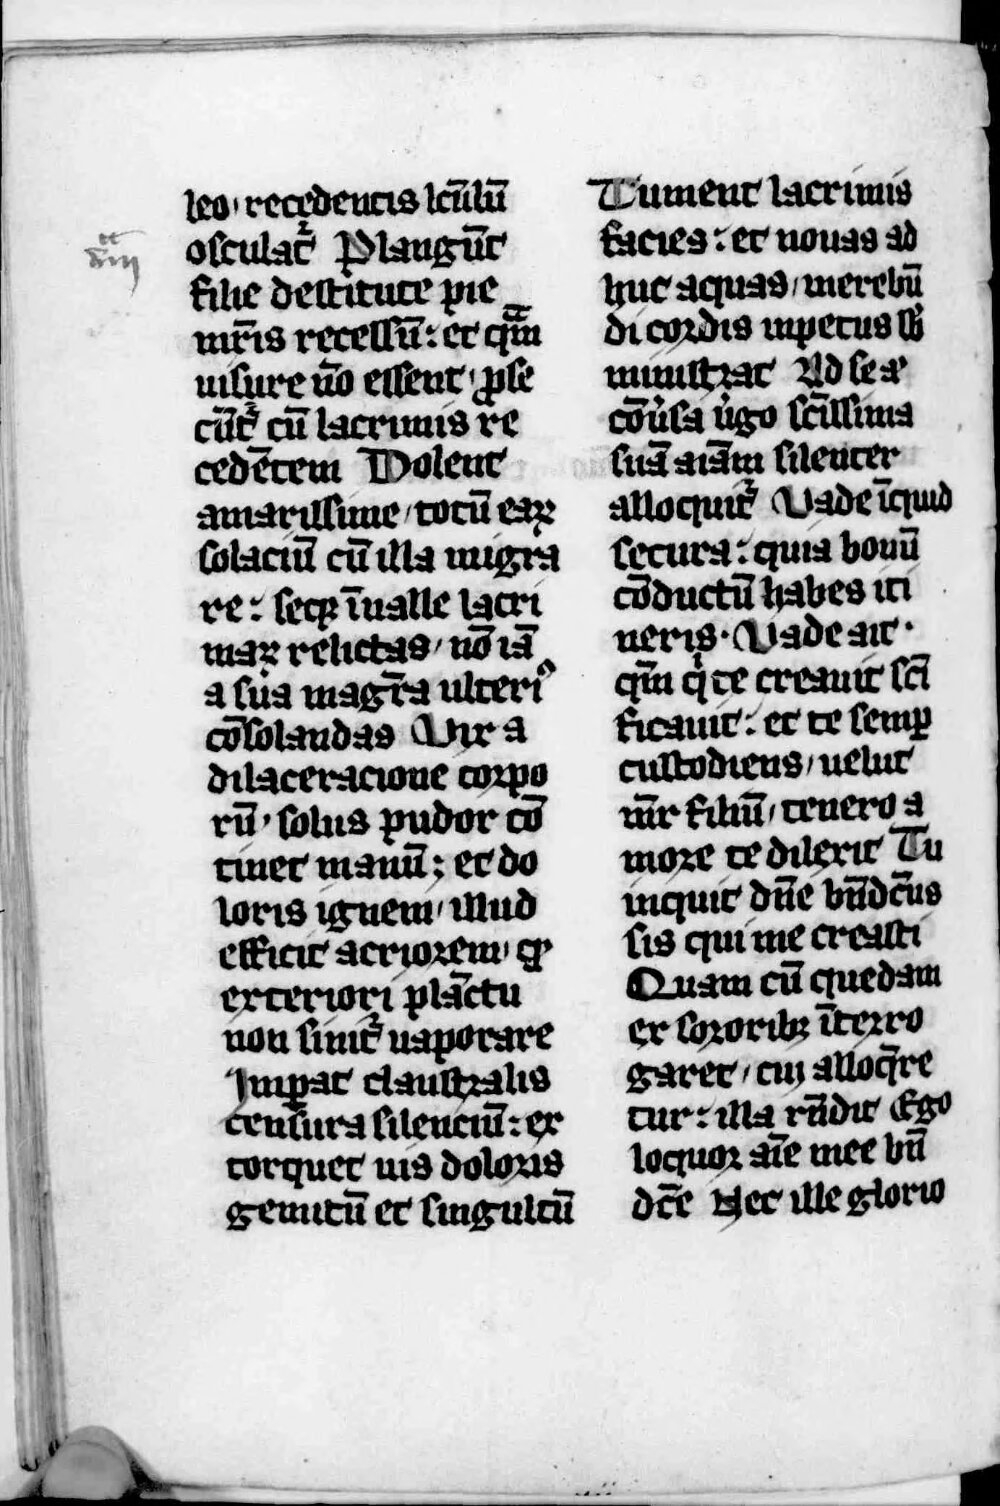 leo, recedentis lectulū
osculat᷑ Plangūt
filie destitute pie
mr̄is recessū: et qm̄
uisure nō essent, ꝓse
cūt᷑ cū lacrimis re
cedētem Dolent
amarissime, totū eaꝝ
solaciū cū illa migra
re: seqꝫ īualle lacri
maꝝ relictas, nō iā
a sua magr̄a ulteriꝰ
cōsolandas Vix a
dilaceracione corpo
rū, solus pudor cō
tinet manū; et do
loris ignem, illud
efficit acriorem, qꝫ
exteriori plāctu
non sinit᷑ uaporare
Imꝑat claustralis
censura silenciū: ex
torquet uis doloris
gemitū et singultū
Tument lacrimis
facies: et nouas ad
huc aquas, merebū
di cordis inpetus sb̄
ministrat Ad se aꝉ
cōu̓sa u̓go sc̄issima
suā aīam silenter
alloquit᷑ Vade īquid
secura: quia bonū
cōductū habes iti
neris. Vade ait.
qm̄ qͥ te creauit sc̄i
ficauit: et te semꝑ
custodiens, uelut
mr̄ filiū, tenero a
more te dilexit Tu
inquit dn̄e bn̄dc̄us
sis qui me creasti
Quam cū quedam
ex sororibꝫ īterro
garet, cui alloqr̄e
tur: illa rn̄dit Ego
loquor aīe mee bn̄
dc̄e Nec ille glorio